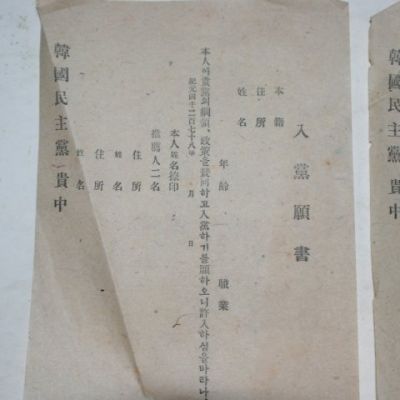 韓國民主黨 貴中
入黨願書
本籍
住所
姓名 年齡 職業
本人이貴黨의綱領、政策을贊同하고入黨하기를願하오니許入하심을바라나
紀元四千二百七十八年 月 日
本人姓名捺印
推薦人二名
住所
姓名
住所
姓名
韓國民主黨 貴中